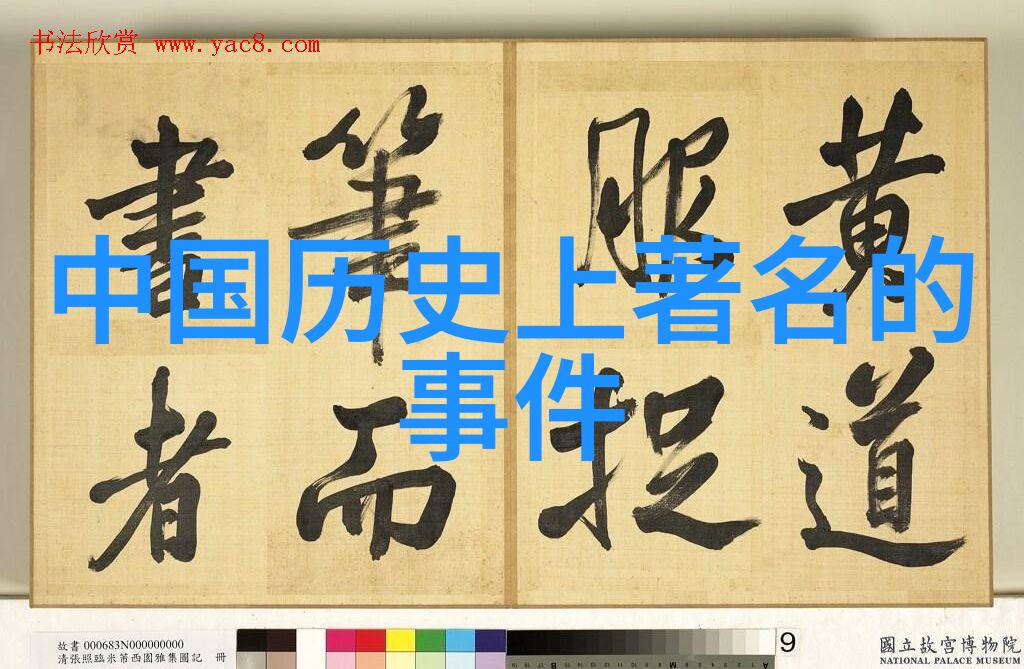 书法欣赏 www.yac8.com
黄道
服捉
筆而
書者
中国历史上著名的
事件
故書 000683N000000000
清張照臨米芾西園雅集圖記 冊
9
國立故宮博物院
NATIONAL PALACE MUSEUM